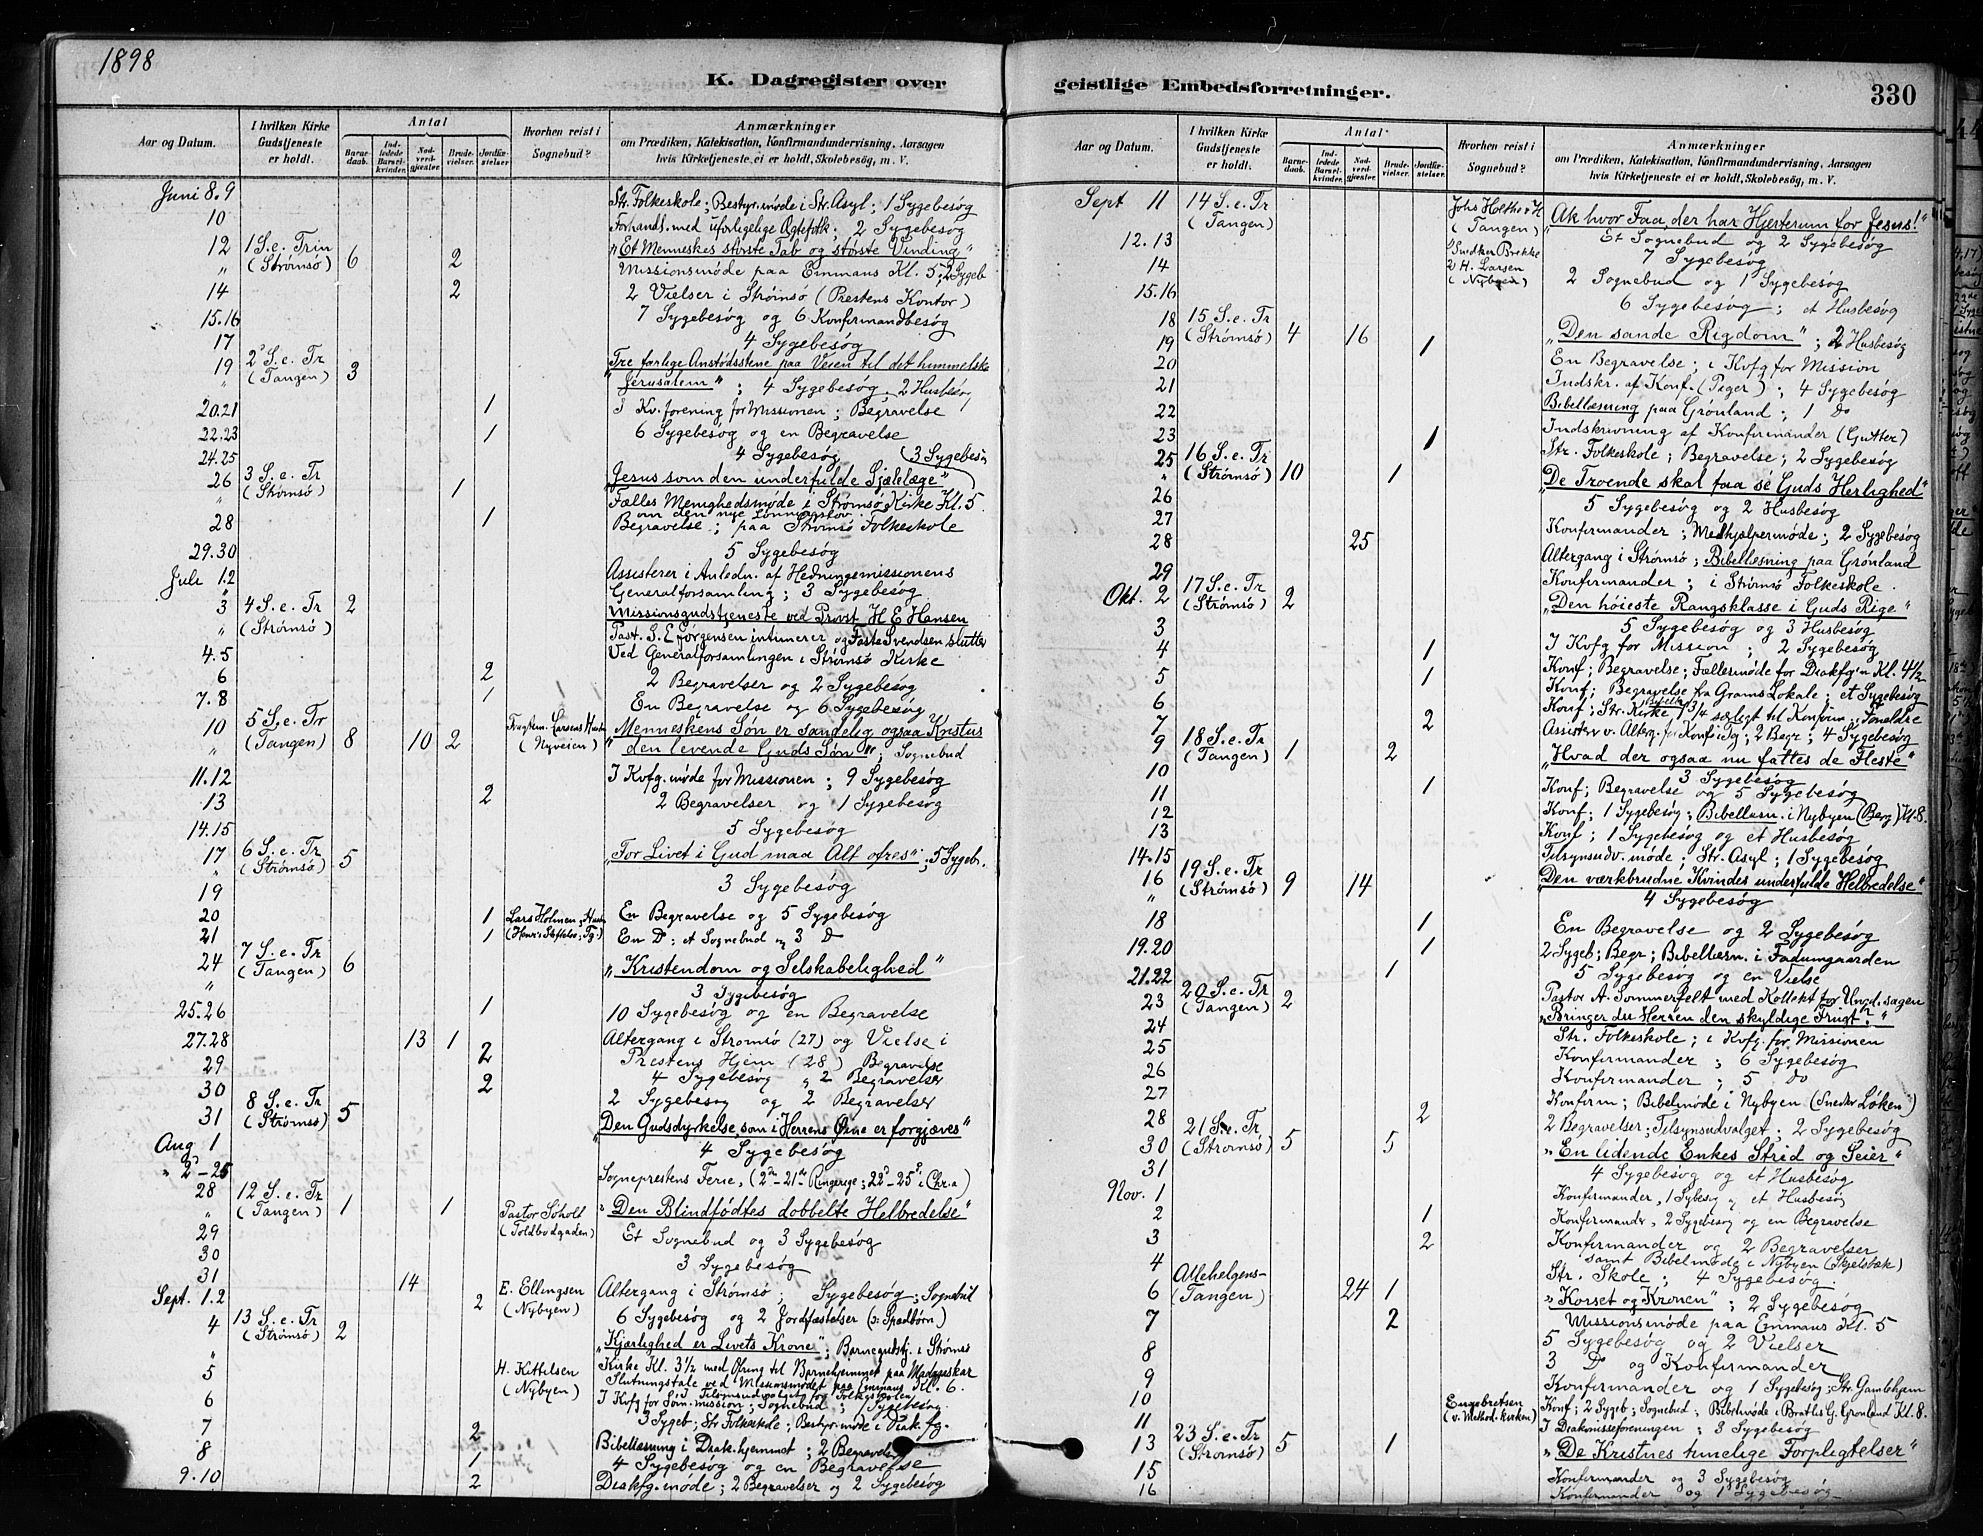 1898
K. Dagregister over
Aar og Datum.
I hvilken Kirke Gudstjeneste er holdt.
Antal
Barne-daab.
Ind-ledede Barsel-kvinder.
Nad-verd-gjester.
Brude-vielser.
Jordfæ-stelser
Hvorhen reist i Sognebud?
Anmærkninger
om Prædiken, Katekisation, Konfirmandundervisning, Aarsagen
hvis Kirketjeneste ei er holdt, Skolebesøg, m. V.
Juni 8.9 Str. Folkeskole; Bestyr. møde i Str. Asyl; 1 Sygebesøg
10 Forhandl. med uforligelige Ægtefolk. 2 Sygebesøg
12 1 S. e. Trin 6 2 "Et Menneskes største Tab og største Vinding"
" (Strømsø) Missionsmøde paa Emmaus Kl. 5; 2 Sygeb
14 2 2 Vielser i Strømsø (Prestens Kontor)
15.16 7 Sygebesøg og 6 Konfirmandbesøg
17 4 Sygebesøg
19 2 S. e. Tr 3 Tre farlige Anstødsstene paa Veien til det himmelske
" (Tangen) Jerusalem"; 4 Sygebesøg, 2 Husbesøg
20.21 1 I Kv. forening for Missionen; Begravelse
22.23 1 6 Sygebesøg og en Begravelse
24.25 4 Sygebesøg (3 Sygebesøg
26 3 S. e. Tr 1 "Jesus som den underfulde Sjælelæge"
" (Strømsø) Fælles Menighedsmøde i Strømsø Kirke Kl. 5
om den nye
28 1 Begravelse; paa Strømsø Folkeskole
29.30 5 Sygebesøg
Juli 1.2 Assisterer i Anledn. af Hedningemissionens
" Generalforsamling; 3 Sygebesøg
3 4 S. e. Tr 2 Missionsgudstjeneste ved Provst H E Hansen
" (Strømsø) Past. S. E Jørgensen intimerer og Svendsen slutter
4.5 Ved Generalforsamlingen i Strømsø Kirke
6 2 2 Begravelser og 2 Sygebesøg
7.8 1 En Begravelse og 6 Sygebesøg
10 5 S. e. Tr 8 10 2 Larsens Hustru "Menneskens Søn er sandelig ogsaa Kristus
" (Tangen) (Nyveien) den levende Guds Søn"; Sognebud
11.12 I Kvfg. møde for Missionen; 9 Sygebesøg
13 2 2 Begravelser og 1 Sygebesøg
14.15 5 Sygebesøg
17 6 S. e. Tr 5 "For Livet i Gud maa Alt ofres"; 5 Sygeb.
" (Strømsø)
19 3 Sygebesøg
20 1 Lars Holmen, En Begravelse og 5 Sygebesøg
21 1 En Do; et Sognebud og 3 Do
24 7 S. e. Tr 6 "Kristendom og Selskabelighed"
" (Tangen) 3 Sygebesøg
25.26 1 10 Sygebesøg og en Begravelse
27.28 13 1 Altergang i Strømsø (27) og Vielse i
29 2 Prestens Hjem (28) Begravelse
4 Sygebesøg " 2 Begravelser
30 2 2 Sygebesøg og 2 Begravelser
31 8 S. e. Tr 5 "Den Gudsdyrkelse, som i Herrens Øine er forgjæves"
Aug 1 (Strømsø) 4 Sygebesøg
" 2-25 Sogneprestens Ferie, (2-21 Ringerige; 22-25 i Chr.a)
28 12 S. e. Tr 1 1 Pastor Søholt "Den Blindfødtes dobbelte Helbredelse"
" (Tangen) (Toldbodgaden)
29 Et Sognebud og 3 Sygebesøg
30 3 Sygebesøg
31 14 E. Ellingsen Altergang i Strømsø; Sygebesøg; Sognebud
Sept. 1.2 2 (Nybyen) 6 Sygebesøg og 2 Jordfæstelser (2 Spædbørn)
4 13 S. e. Tr 2 "Kjærlighed er Livets Krone"; Barnegudstj. i Strømsø
" (Strømsø) Kirke Kl. 3½ med Ofring til Barnehjemmet paa Madagaskar
5 H. Kittelsen Slutningstale ved Missionsmødet paa Emmaus Kl. 6.
6 (Nybyen) I Kvfg for Søm. mission; Sognebud; 1 Sygebesøg
7 2 3 Sygeb; Str Folkeskole; Bestyr. møde i Diak. fg.
8 1 Bibellæsning i Diak. hjemmet; 2 Begravelser
4 Sygebesøg og en Begravelse
9.10 2 Diakfg. møde; 2 Begravelser og 2 Sygebesøg
geistlige Embedsforretninger.
330
Aar og Datum.
I hvilken Kirke Gudstjeneste er holdt.
Antal
Barne-daab.
Ind-ledede Barsel-kvinder.
Nad-verd-gjester.
Brude-vielser.
Jordfæ-stelser.
Hvorhen reist i Sognebud?
Anmærkninger
om Prædiken, Katekisation, Konfirmandundervisning, Aarsagen
hvis Kirketjeneste ei er holdt, Skolebesøg, m. V.
Sept 11 14 S. e. Tr (Tangen) (Tangen) "Ak hvor Faa, der har Hjerterum for Jesus!"
12.13 Et Sognebud og 2 Sygebesøg
14 Snedker Brekke 7 Sygebesøg
2 H. Larsen (Nybyen) 2 Sognebud og 1 Sygebesøg
15.16 6 Sygebesøg; et Husbesøg
18 15 S. e. Tr 4 16 "Den sande Rigdom"; 2 Husbesøg
19 (Strømsø) 1 En Begravelse; i Kvfg for Mission
20 Indskr. af Konf. (Piger); 4 Sygebesøg
21 Bibellæsning paa Grønland; 1 Do
22 Indskrivning af Konfirmander (Gutter)
23 1 Str. Folkeskole; Begravelse; 2 Sygebesøg
25 16 S. e. Tr 10 1 "De Troende skal faa se Guds Herlighed"
" (Strømsø)
26 5 Sygebesøg og 2 Husbesøg
27 Konfirmander; Medhjælpermøde; 2 Sygebesøg
28 25 Altergang i Strømsø; Bibellæsning paa Grønland
29 Konfirmander; i Strømsø Folkeskole.
Okt. 2 17 S. e. Tr (Strømsø) 2 "Den høieste Rangsklasse i Guds Rige"
3 5 Sygebesøg og 3 Husbesøg
4 1 I Kvfg for Mission; 2 Sygebesøg
5 1 Konf; Begravelse; Fællesmøde for Diakfg'n Kl. 4½
6 Konf; Begravelse fra Grams Lokale; et Sygebesøg
7 2 Konf; Str. Kirke særligt til Konfirm. Forældre
Assisterer v. Alterg. 2 Begr; 4 Sygebesøg
9 18 S. e. Tr (Tangen) 1 2 "Hvad der ogsaa nu fattes de Fleste"
10 3 Sygebesøg
11 1 Konf; Begravelse og 5 Sygebesøg
12 Konf; 1 Sygebesøg; Bibellæsn. i Nybyen (Berg) Kl. 8.
13 Konf; 1 Sygebesøg og et Husbesøg
14.15 Tilsynsudv. møde; Str. Asyl; 1 Sygebesøg
16 19 S. e. Tr (Strømsø) 9 14 "Den værkbrudne Kvindes underfulde Helbredelse"
" 4 Sygebesøg
18 1 En Begravelse og 2 Sygebesøg
19.20 1 2 Sygeb; Begr; Bibellæsn. i Fadumgaarden
21.22 1 5 Sygebesøg og en Vielse
23 20 S. e. Tr (Tangen) 2 Pastor A. Sommerfelt med Kollekt for Ungd. sagen
"Bringer du Herren den skyldige Frugt?"
24 Str. Folkeskole; i Kvfg. for Missionen
25 Konfirmander; 6 Sygebesøg
26 Konfirmander; 5 Do
27 Konfirm; Bibelmøde i Nybyen (Snedker Løken)
28 2 2 Begravelser; Tilsynsudvalget; 2 Sygebesøg
30 21 S. e. Tr (Strømsø) 5 5 "En lidende Enkes Strid og Seier"
31 4 Sygebesøg og et Husbesøg
Nov. 1 Konfirmander, 1 Sygebesøg, et Husbesøg
2 1 Konfirmander, 2 Sygebesøg og en Begravelse
3 2 Konfirmander og 2 Begravelser
samt Bibelmøde i Nybyen (Skjelsbæk)
4 Str. Skole; 4 Sygebesøg.
6 Allehelgens- (Tangen) 24 1 "Korset og Kronen"; 2 Sygebesøg
Missionsmøde paa Emmaus Kl. 5
7 2 5 Sygebesøg og 2 Vielser
8 3 Do og Konfirmander
9 Konfirmander og 1 Sygebesøg; Str. Gamlehjem
10 Engebretsen (v. Method. kirken) Konf; 2 Sygeb; Sognebud; Bibelmøde i Grønland Kl. 8.
11 I Diakonisseforeningen; 3 Sygebesøg
13 23 S. e. Tr (Strømsø) 5 1 "De Kristnes timelige Forpligtelser"
15 Konfirmander og 3 Sygebesøg
16 Konfirmander og 1 Sygebesøg